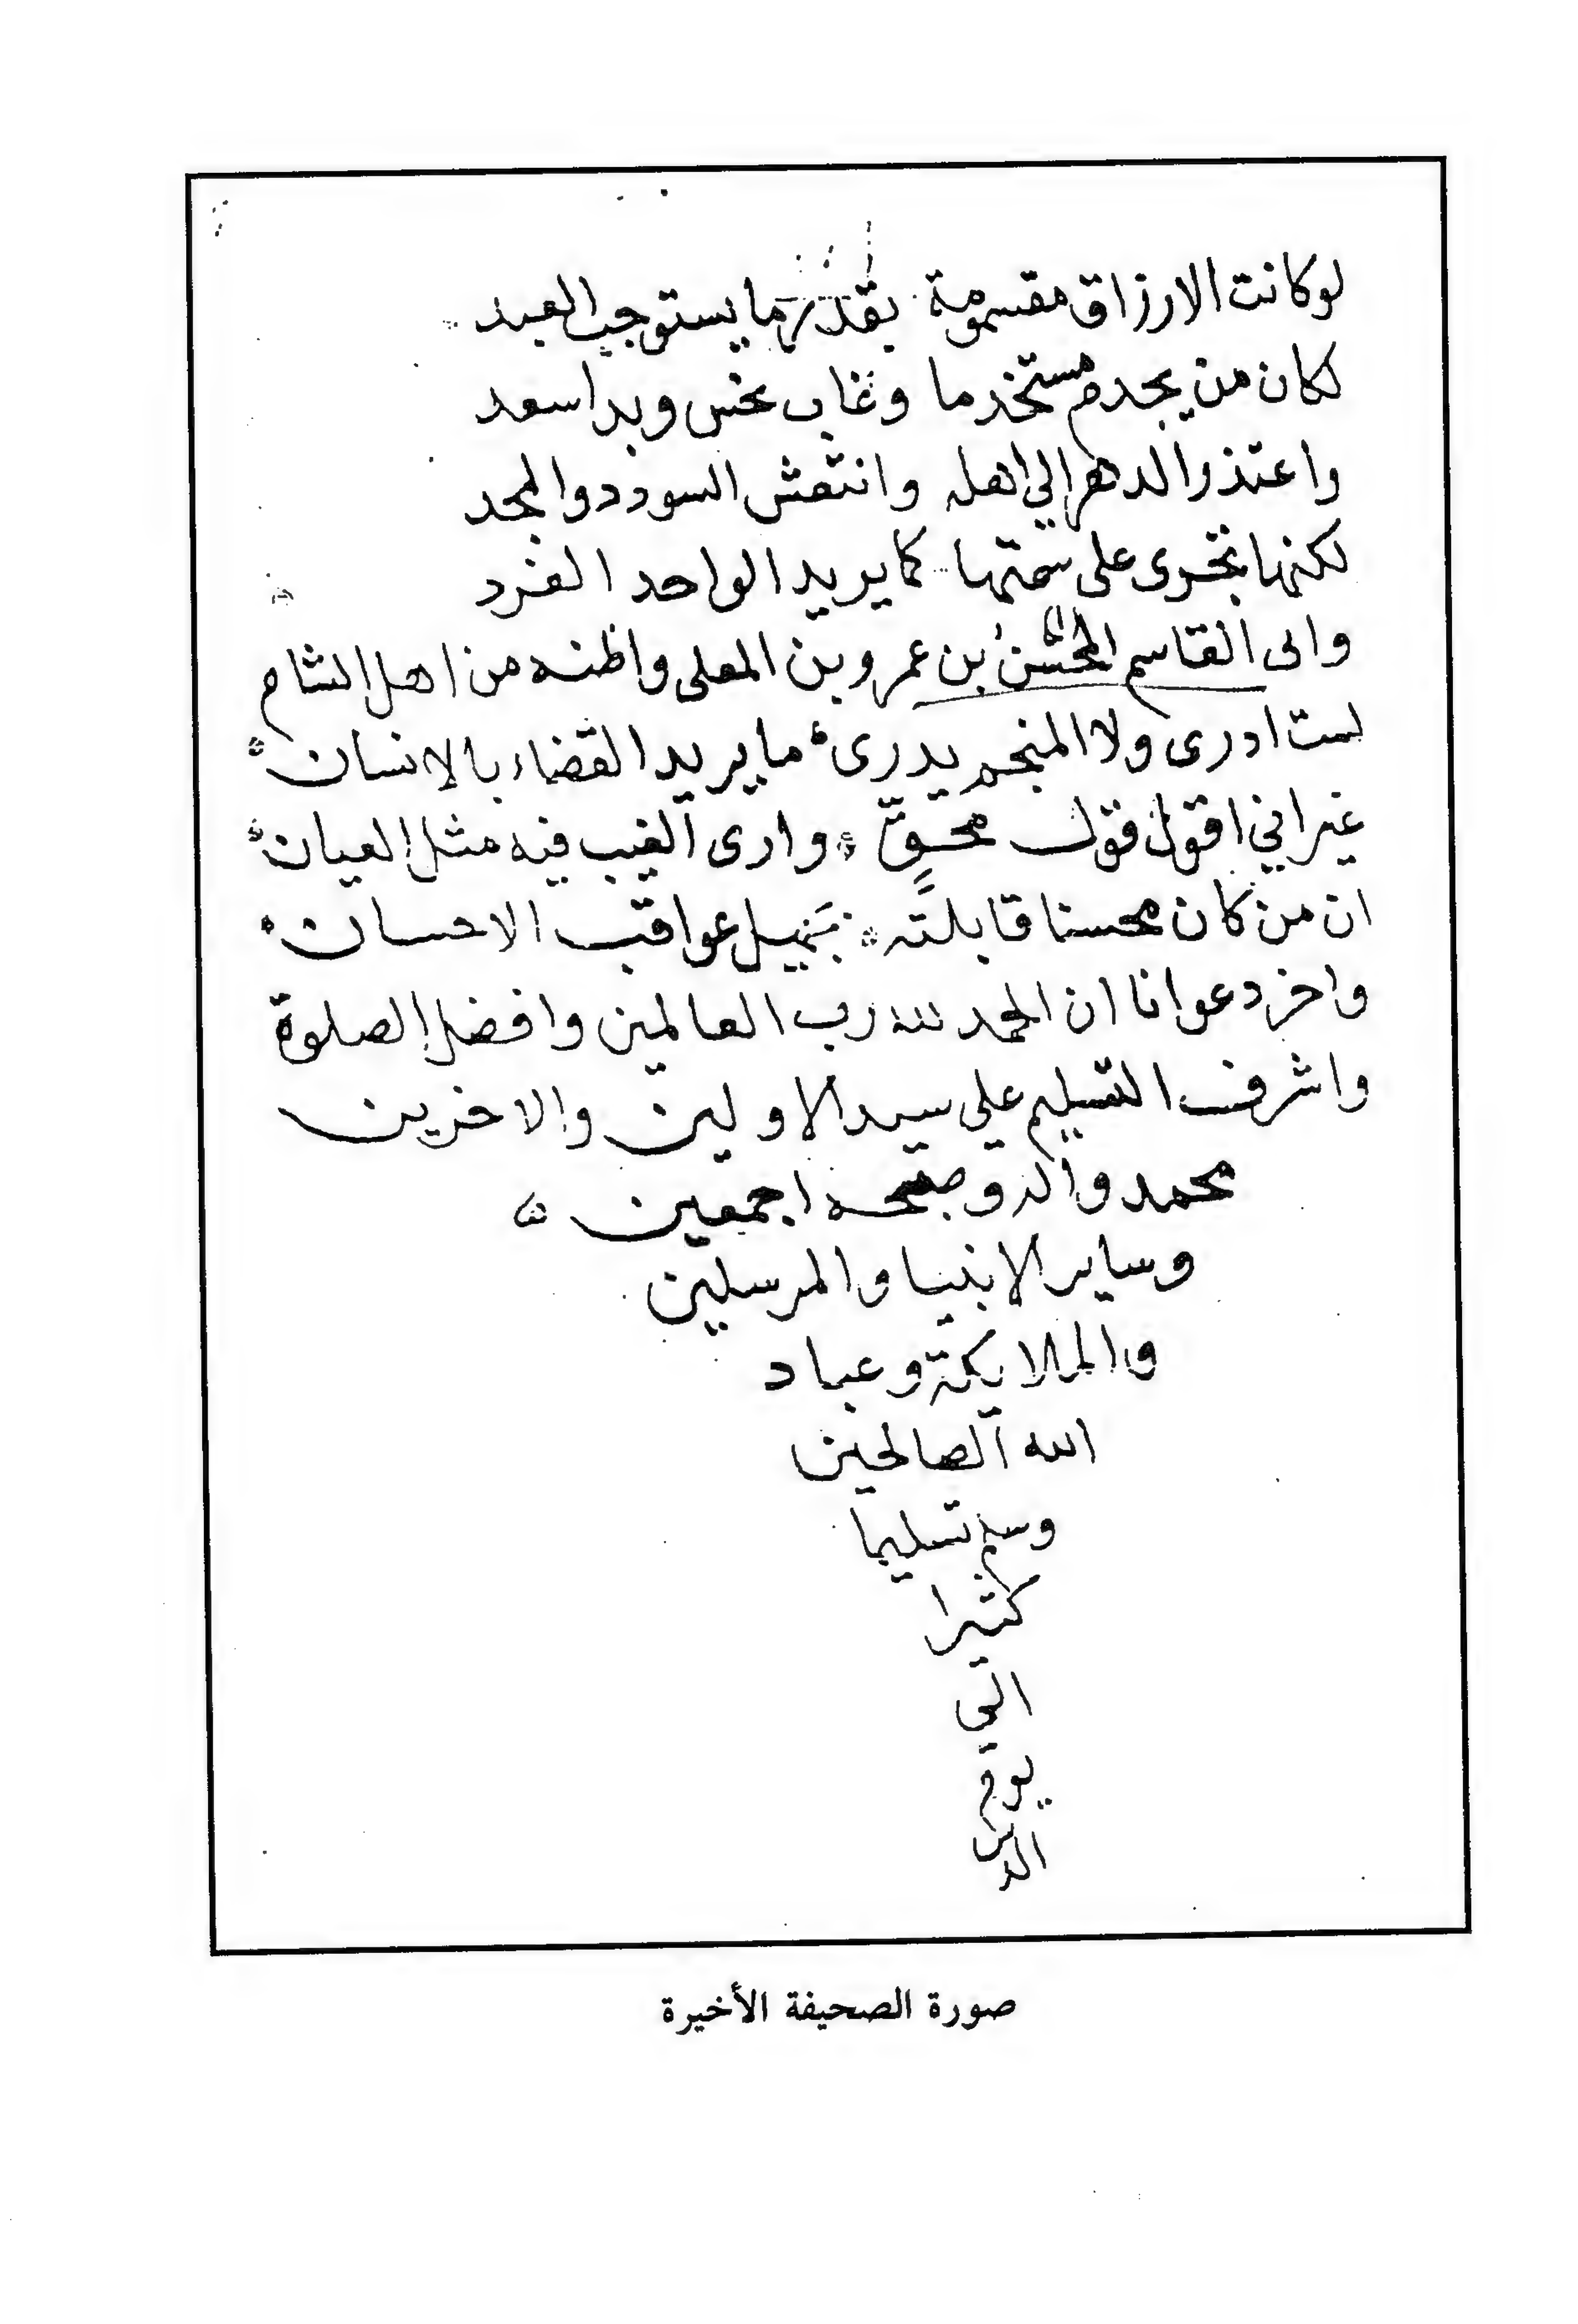 لو كانت الارزاق مقسومة بقدر ما يستوجب العبد
لكان من يخدم مستخدما وغاب نحس وبدا سعد
واعتذر الدهر الي اهله وانتعش السودد والمجد
لكنها تجرى على سمتها كما يريد الواحد الفرد
والى القاسم المحسن بن عمرو بن المعلى واظنه من اهل الشام
لست ادرى ولا المنجم يدرى ما يريد القضاء بالانسان
غير اني اقول قول محقٍّ وارى الغيب فيه مثل العيان
ان من كان محسنا قابلته بجميل عواقب الاحسان
واخر دعوانا ان الحمد لله رب العالمين وافضل الصلوة
واشرف التسليم علي سيد الاولين والاخرين
محمد واله وصحبه اجمعين
وساير الانبيا والمرسلين
والملايكة وعباد
الله الصالحين
وسلم تسليما
كثيرا
الي
يوم
الدين
صورة الصحيفة الأخيرة